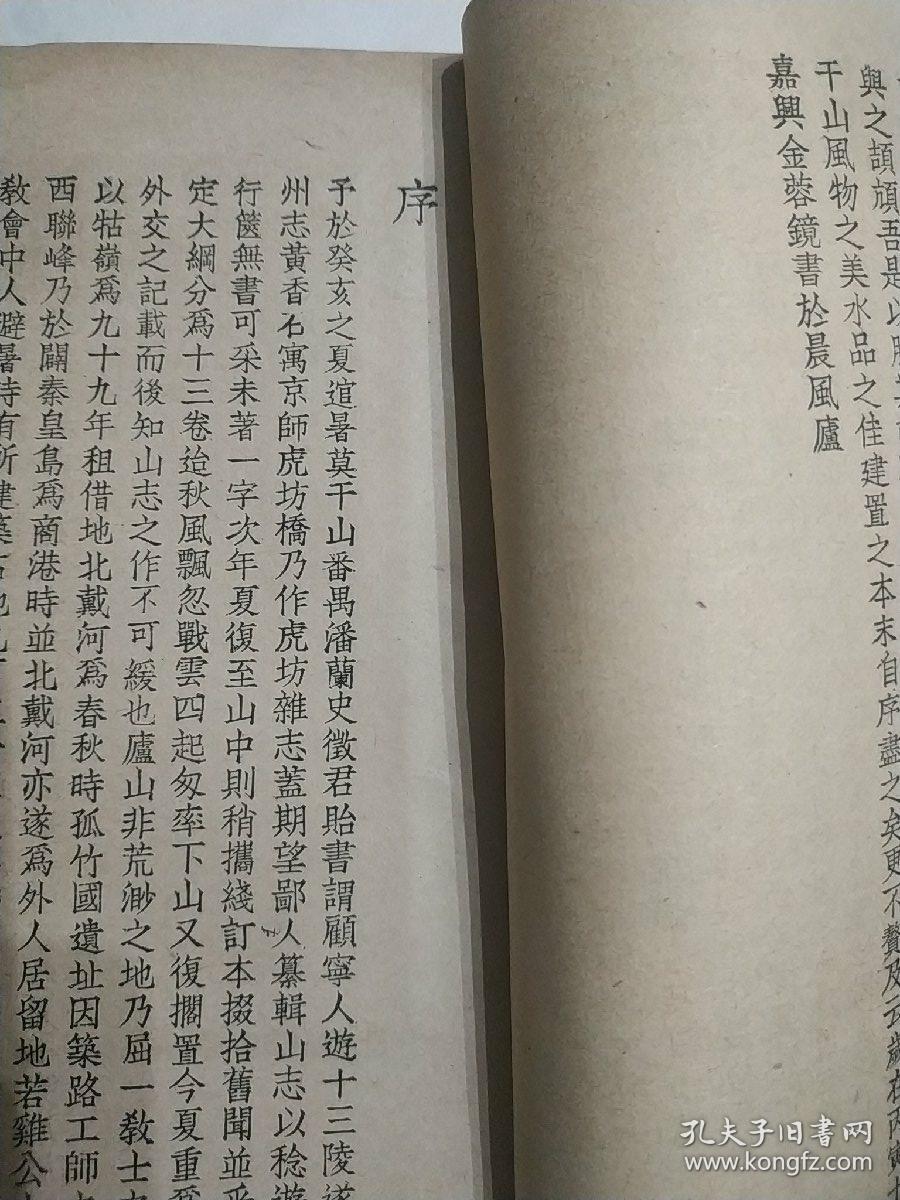 與之頡頏吾是以
干山風物之美水品之佳建置之本末自序盡之矣更不贅及云歲在丙寅
嘉興金蓉鏡書於晨風廬
序
予於癸亥之夏逭暑莫干山番禺潘蘭史徵君貽書謂顧寧人遊十三陵遂
州志黃香石寓京師虎坊橋乃作虎坊雜志蓋期望鄙人纂輯山志以稔遊
行篋無書可采未著一字次年夏復至山中則稍攜綫訂本掇拾舊聞並
定大綱分爲十三卷迨秋風飄忽戰雲四起匆率下山又復擱置今夏重
外交之記載而後知山志之作不可緩也廬山非荒渺之地乃屈一教士
以牯嶺爲九十九年租借地北戴河爲春秋時孤竹國遺址因築路工師
西聯峰乃於闢秦皇島爲商港時並北戴河亦遂爲外人居留地若雞公
教會中人避暑時有所建築
孔夫子旧书网
www.kongfz.com